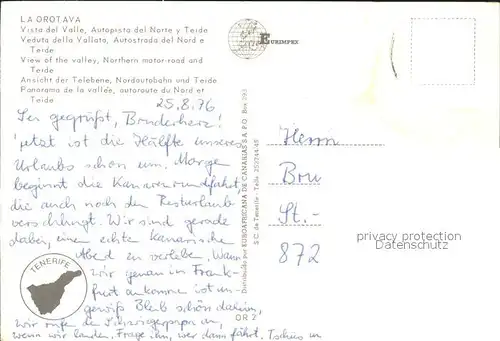 LA OROTAVA
Vista del Valle, Autopista del Norte y Teide
Veduta della Vallata, Autostrada del Nord e
Teide
View of the valley, Northern motor-road and
Teide
Ansicht der Telebene, Nordautobahn und Teide
Panorama de la vallée, autoroute du Nord et
Teide
EURIMPEX
25.8.76
Sei gegrüßt, Bruderherz!
jetzt ist die Hälfte unseres
Urlaubs schon um. Morge
beginnt die Kanarenrundfahrt,
die auch noch den Resturlaub
verschlingt. Wir sind gerade
dabei, einen echte Kanarische
Abend zu verleben. Wann
wir genau in Frank-
furt ankomme ist un-
gewiß Bleib schön daheim,
wir rufen den Schwiegerpapa an,
wenn wir landen. Frage ihn, wer dann fährt. Tschüs
TENERIFE
OR 2
Distribuido por EUROAFRICANA DE CANARIAS S.A.P.O. Box 293
S.C. de Tenerife - Tello. 253744/45
Herrn
Bru
St.-
872
privacy protection
Datenschutz